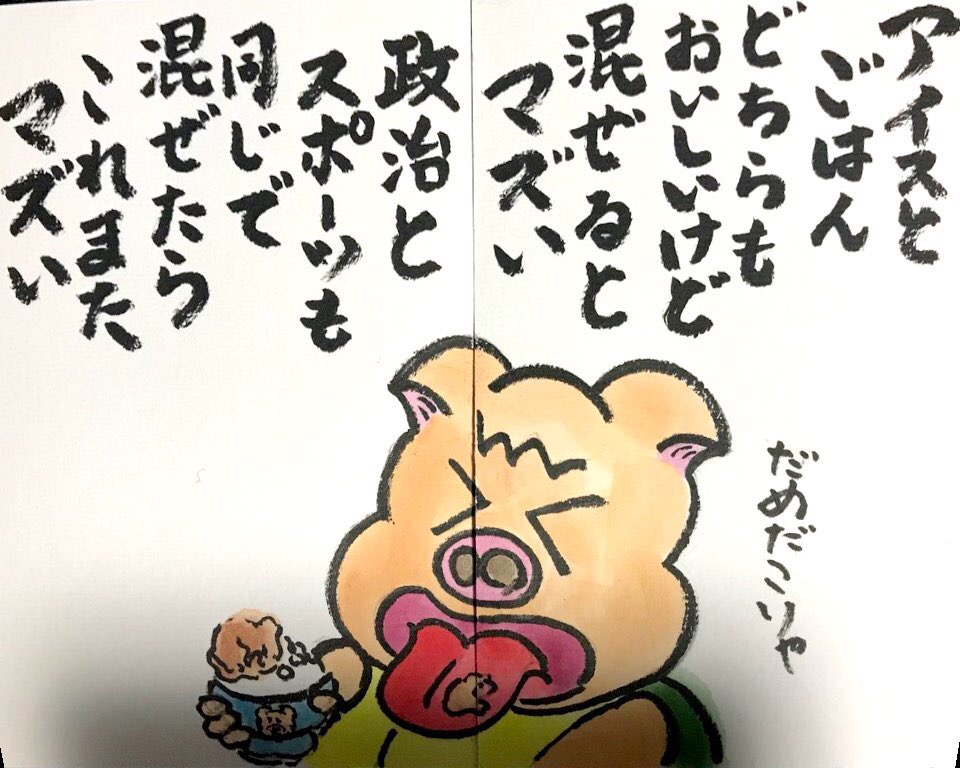 アイスと
ごはん
どちらも
おいしいけど
混ぜると
マズい
政治と
スポーツも
同じで
混ぜたら
これまた
マズい
だめだこりゃ